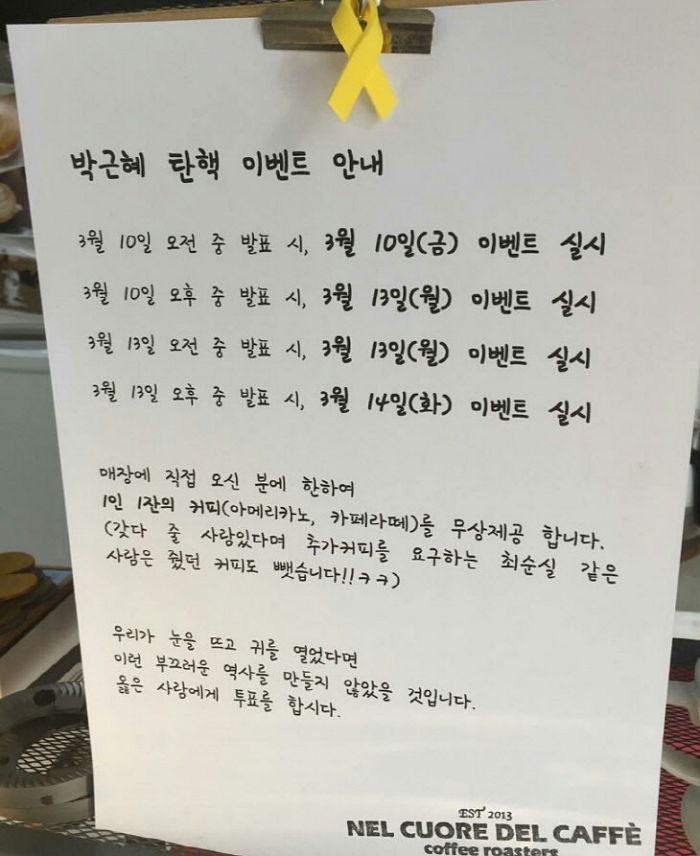 박근혜 탄핵 이벤트 안내
3월 10일 오전 중 발표 시, 3월 10일(금) 이벤트 실시
3월 10일 오후 중 발표 시, 3월 13일(월) 이벤트 실시
3월 13일 오전 중 발표 시, 3월 13일(월) 이벤트 실시
3월 13일 오후 중 발표 시, 3월 14일(화) 이벤트 실시
매장에 직접 오신 분에 한하여
1인 1잔의 커피(아메리카노, 카페라떼)를 무상제공 합니다.
(갖다 줄 사람있다며 추가커피를 요구하는 최순실 같은
사람은 줬던 커피도 뺏습니다!!ㅋㅋ)
우리가 눈을 뜨고 귀를 열었다면
이런 부끄러운 역사를 만들지 않았을 것입니다.
옳은 사람에게 투표를 합시다.
EST 2013
NEL CUORE DEL CAFFÈ
coffee roasters